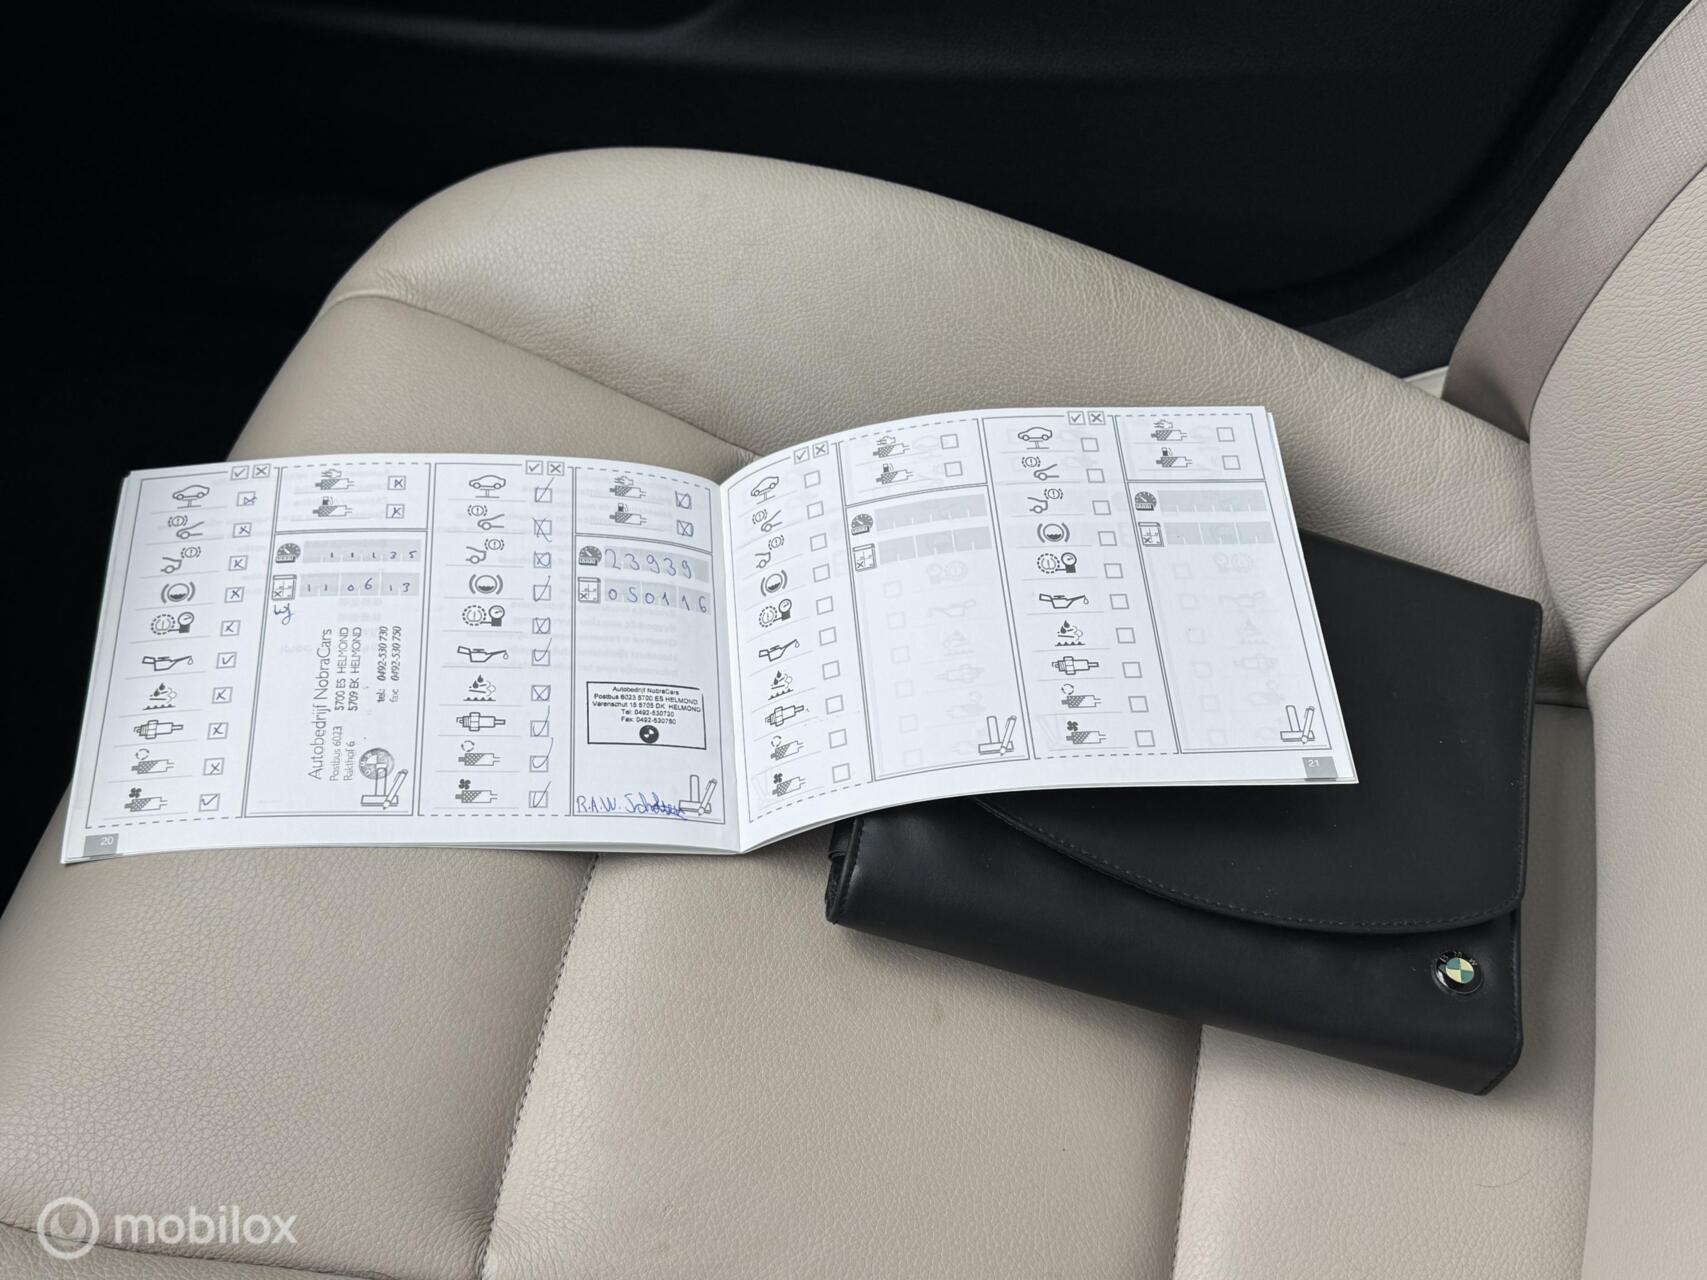 11135
110613
Autobedrijf NobraCars
Postbus 6023 5700 ES HELMOND
Rakthof 6 5709 EK HELMOND
tel: 0492-530 730
fax: 0492-530 750
20
23939
050116
Autobedrijf NobraCars
Postbus 6023 5700 ES HELMOND
Varenschut 15 5705 DK HELMOND
Tel: 0492-530730
Fax: 0492-530750
R.A.W.
21
BMW
mobilox